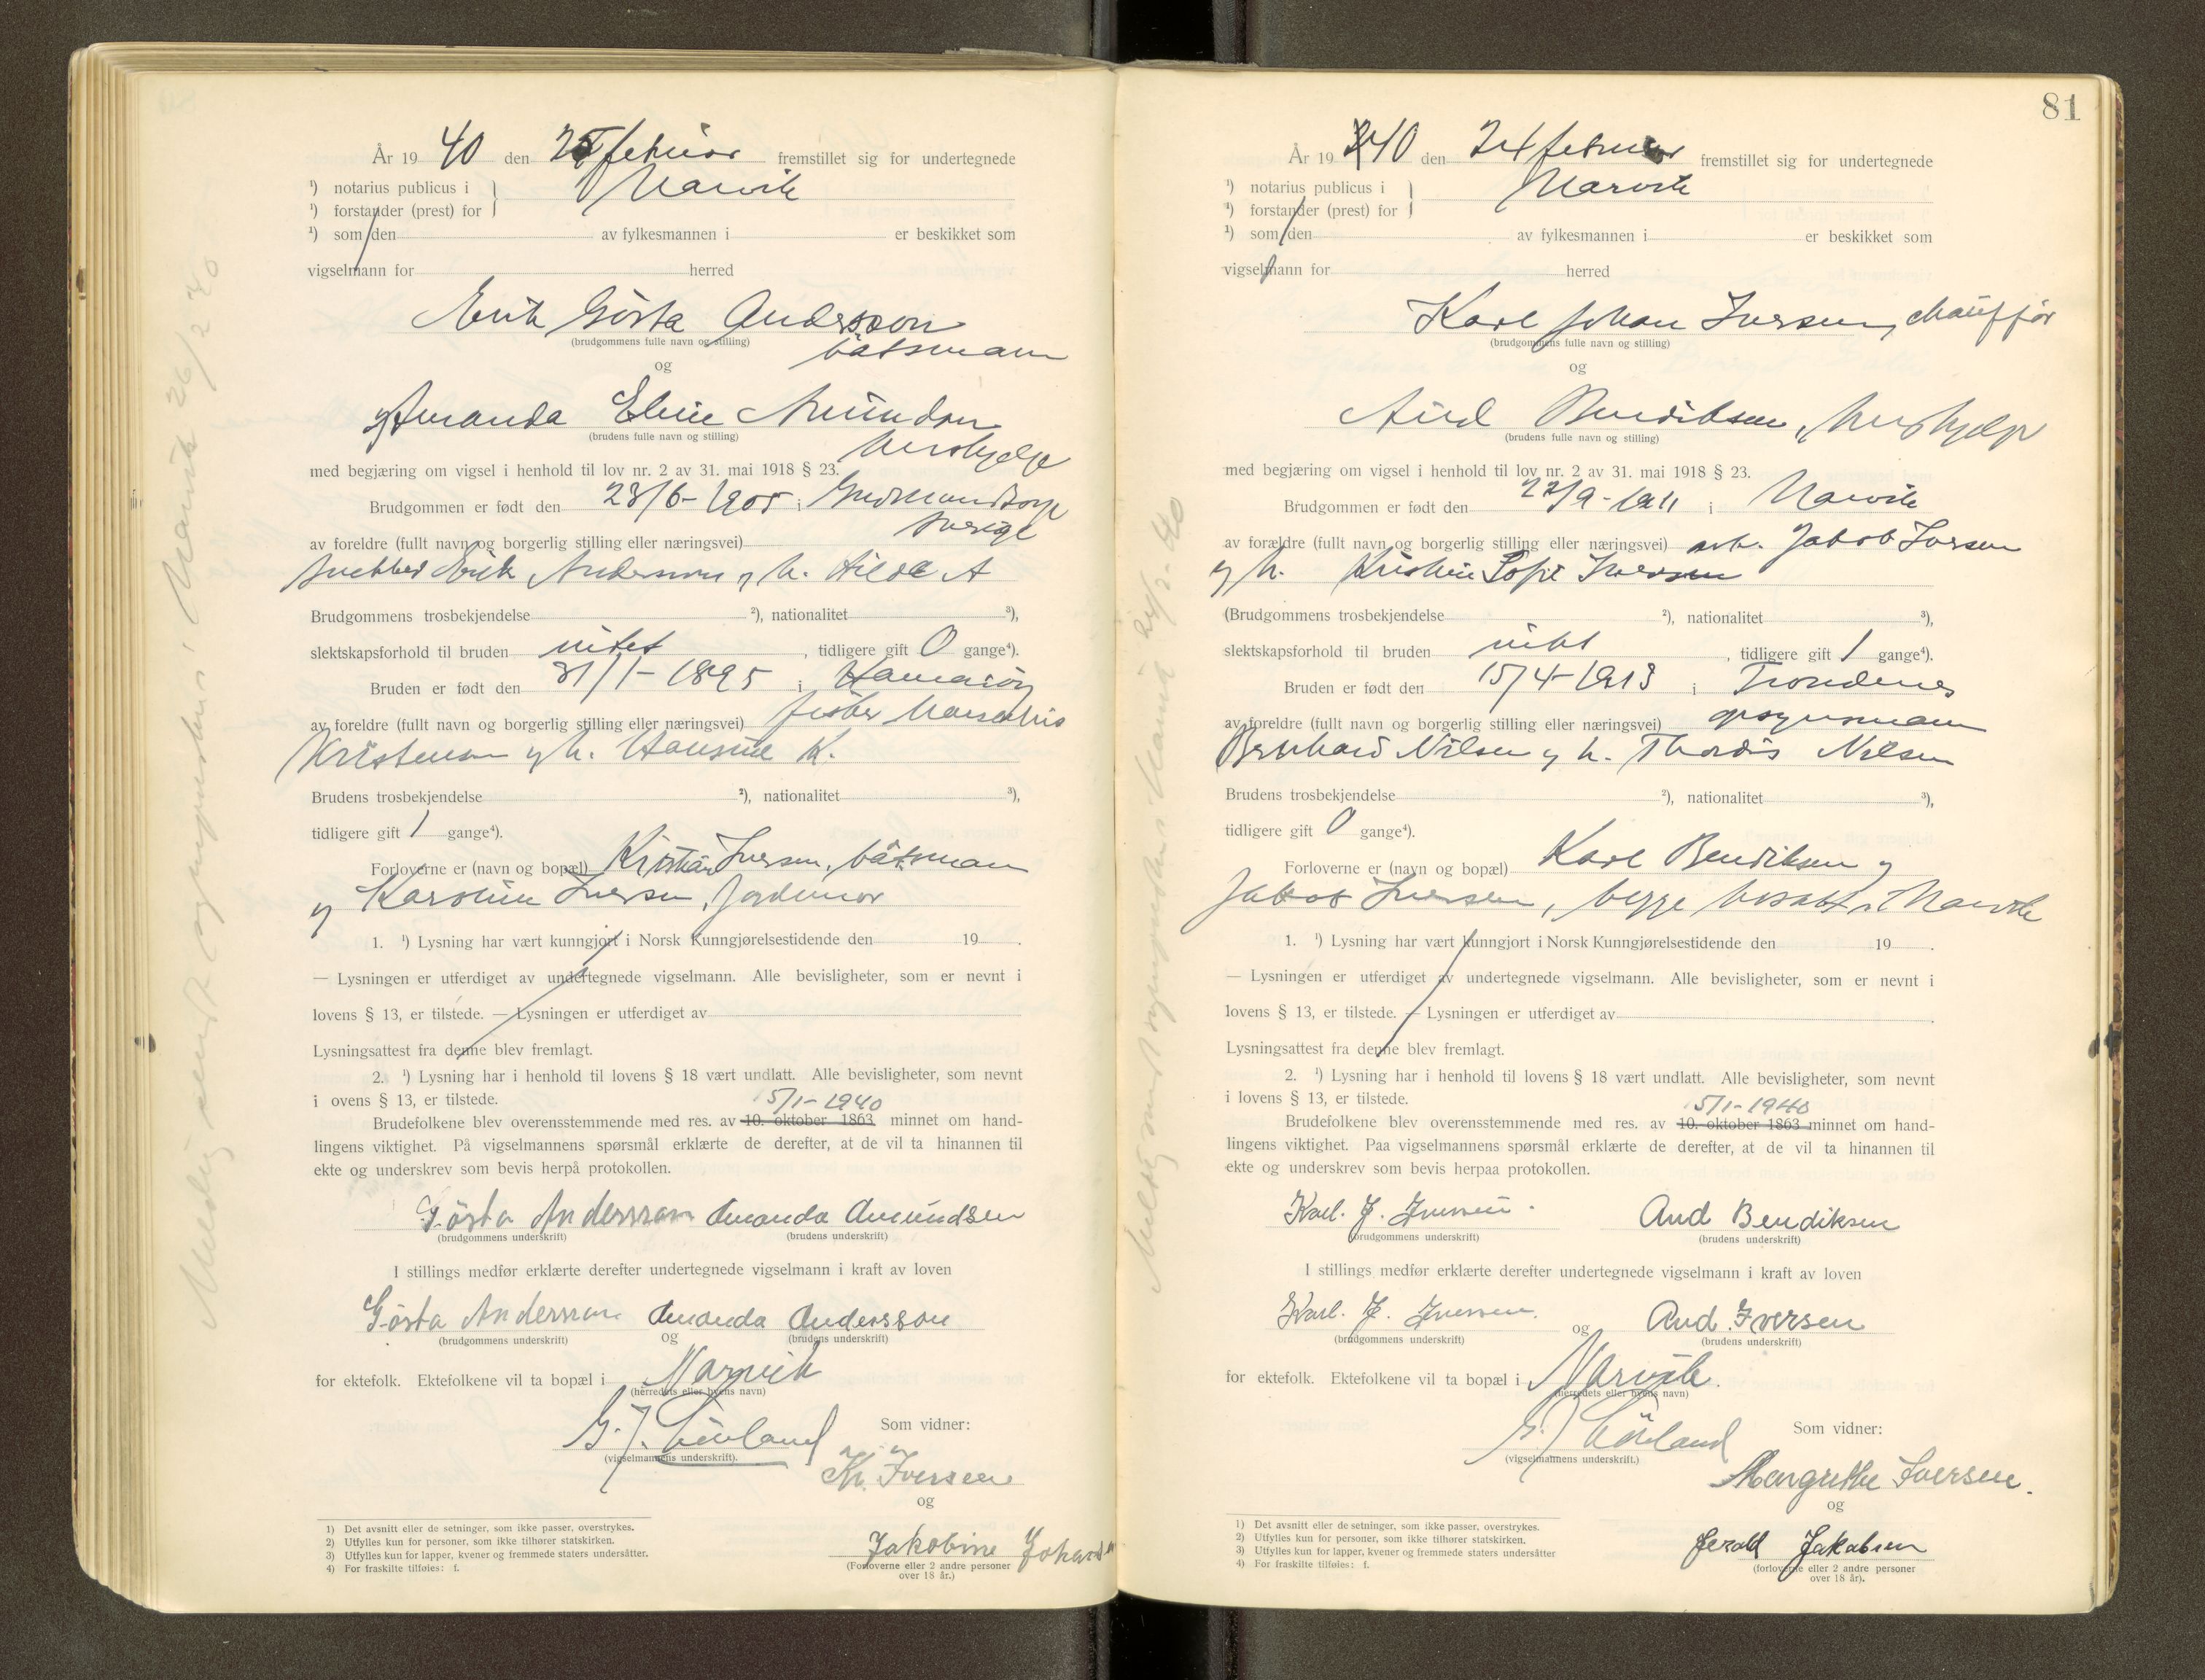 År 19 40 den 25 februar fremstillet sig for undertegnede
¹) notarius publicus i Narvik
¹) forstander (prest) for
¹) som den av fylkesmannen i er beskikket som
vigselmann for herred
Erik Gösta Andersson
(brudgommens fulle navn og stilling)
båtsmann
og
Amanda Eline Amundsen
(brudens fulle navn og stilling)
hushjelp
med begjæring om vigsel i henhold til lov nr. 2 av 31. mai 1918 § 23.
Brudgommen er født den 23/6-1905 i Gudmundtorp
Sverige
av foreldre (fullt navn og borgerlig stilling eller næringsvei)
snekker Erik Andersson og h. Hilda A
Brudgommens trosbekjendelse ²), nationalitet ³),
slektskapsforhold til bruden intet, tidligere gift 0 gange⁴).
Bruden er født den 31/1-1895 i Hamarøy
av foreldre (fullt navn og borgerlig stilling eller næringsvei) fisker
Kristensen og h. Hansine K.
Brudens trosbekjendelse ²), nationalitet ³),
tidligere gift 1 gange⁴).
Forloverne er (navn og bopæl) Kristian Iversen, båtsman
og Karoline Iversen, jordmor
1. ¹) Lysning har vært kunngjort i Norsk Kunngjørelsestidende den 19 .
— Lysningen er utferdiget av undertegnede vigselmann. Alle bevisligheter, som er nevnt i
lovens § 13, er tilstede. — Lysningen er utferdiget av
Lysningsattest fra denne blev fremlagt.
2. ¹) Lysning har i henhold til lovens § 18 vært undlatt. Alle bevisligheter, som nevnt
i ovens § 13, er tilstede.
5/1-1940
Brudefolkene blev overensstemmende med res. av 10. oktober 1863 minnet om hand-
lingens viktighet. På vigselmannens spørsmål erklærte de derefter, at de vil ta hinannen til
ekte og underskrev som bevis herpå protokollen.
Gösta Andersson Amanda Amundsen
(brudgommens underskrift) (brudens underskrift)
I stillings medfør erklærte derefter undertegnede vigselmann i kraft av loven
Gösta Andersson Amanda Andersson
(brudgommens underskrift) og (brudens underskrift)
for ektefolk. Ektefolkene vil ta bopæl i Narvik
(herredets eller byens navn)
Som vidner:
(vigselmannens underskrift).
Kr. Iversen
og
Jakobine
(Forloverne eller 2 andre personer
over 18 år.)
1) Det avsnitt eller de setninger, som ikke passer, overstrykes.
2) Utfylles kun for personer, som ikke tilhører statskirken.
3) Utfylles kun for lapper, kvener og fremmede staters undersåtter.
4) For fraskilte tilføies: f.
Melding sendt Narvik 26/2 40
81
År 19 40 den 24 februar fremstillet sig for undertegnede
¹) notarius publicus i Narvik
¹) forstander (prest) for
¹) som den av fylkesmannen i er beskikket som
vigselmann for herred
Karl Johan Iversen, chauffør
(brudgommens fulle navn og stilling)
og
Aud Bendiksen, hushjelp
(brudens fulle navn og stilling)
med begjæring om vigsel i henhold til lov nr. 2 av 31. mai 1918 § 23.
Brudgommen er født den 22/9-1911 i Narvik
av forældre (fullt navn og borgerlig stilling eller næringsvei) arb. Jakob Iversen
og h. Kristine Sofie Iversen
(Brudgommens trosbekjendelse ²), nationalitet ³),
slektskapsforhold til bruden intet, tidligere gift 1 gange⁴).
Bruden er født den 15/4-1913 i Trondenes
av foreldre (fullt navn og borgerlig stilling eller næringsvei) opsynsmann
Bernhard Nilsen og h. Thordis Nilsen
Brudens trosbekjendelse ²), nationalitet ³),
tidligere gift 0 gange⁴).
Forloverne er (navn og bopæl) Karl Bendiksen og
Jakob Iversen, begge bosatt i Narvik
1. ¹) Lysning har vært kunngjort i Norsk Kunngjørelsestidende den 19 .
— Lysningen er utferdiget av undertegnede vigselmann. Alle bevisligheter, som er nevnt i
lovens § 13, er tilstede. — Lysningen er utferdiget av .
Lysningsattest fra denne blev fremlagt.
2. ¹) Lysning har i henhold til lovens § 18 vært undlatt. Alle bevisligheter, som nevnt
i lovens § 13, er tilstede.
5/1-1940
Brudefolkene blev overensstemmende med res. av 10. oktober 1863 minnet om hand-
lingens viktighet. Paa vigselmannens spørsmål erklærte de derefter, at de vil ta hinannen til
ekte og underskrev som bevis herpaa protokollen.
Karl. J. Iversen. Aud Bendiksen
(brudgommens underskrift) (brudens underskrift)
I stillings medfør erklærte derefter undertegnede vigselmann i kraft av loven
Karl. J. Iversen. og Aud Iversen
(brudgommens underskrift) (brudens underskrift)
for ektefolk. Ektefolkene vil ta bopæl i Narvik.
(herredets eller byens navn)
Som vidner:
(vigselmannens underskrift.)
Margrethe Iversen.
og
Jerald Jakobsen
(forloverne eller 2 andre personer
over 18 år).
1) Det avsnitt eller de setninger, som ikke passer, overstrykes.
2) Utfylles kun for personer, som ikke tilhører statskirken.
3) Utfylles kun for lapper, kvener og fremmede staters undersåtter
4) For fraskilte tilføies: f.